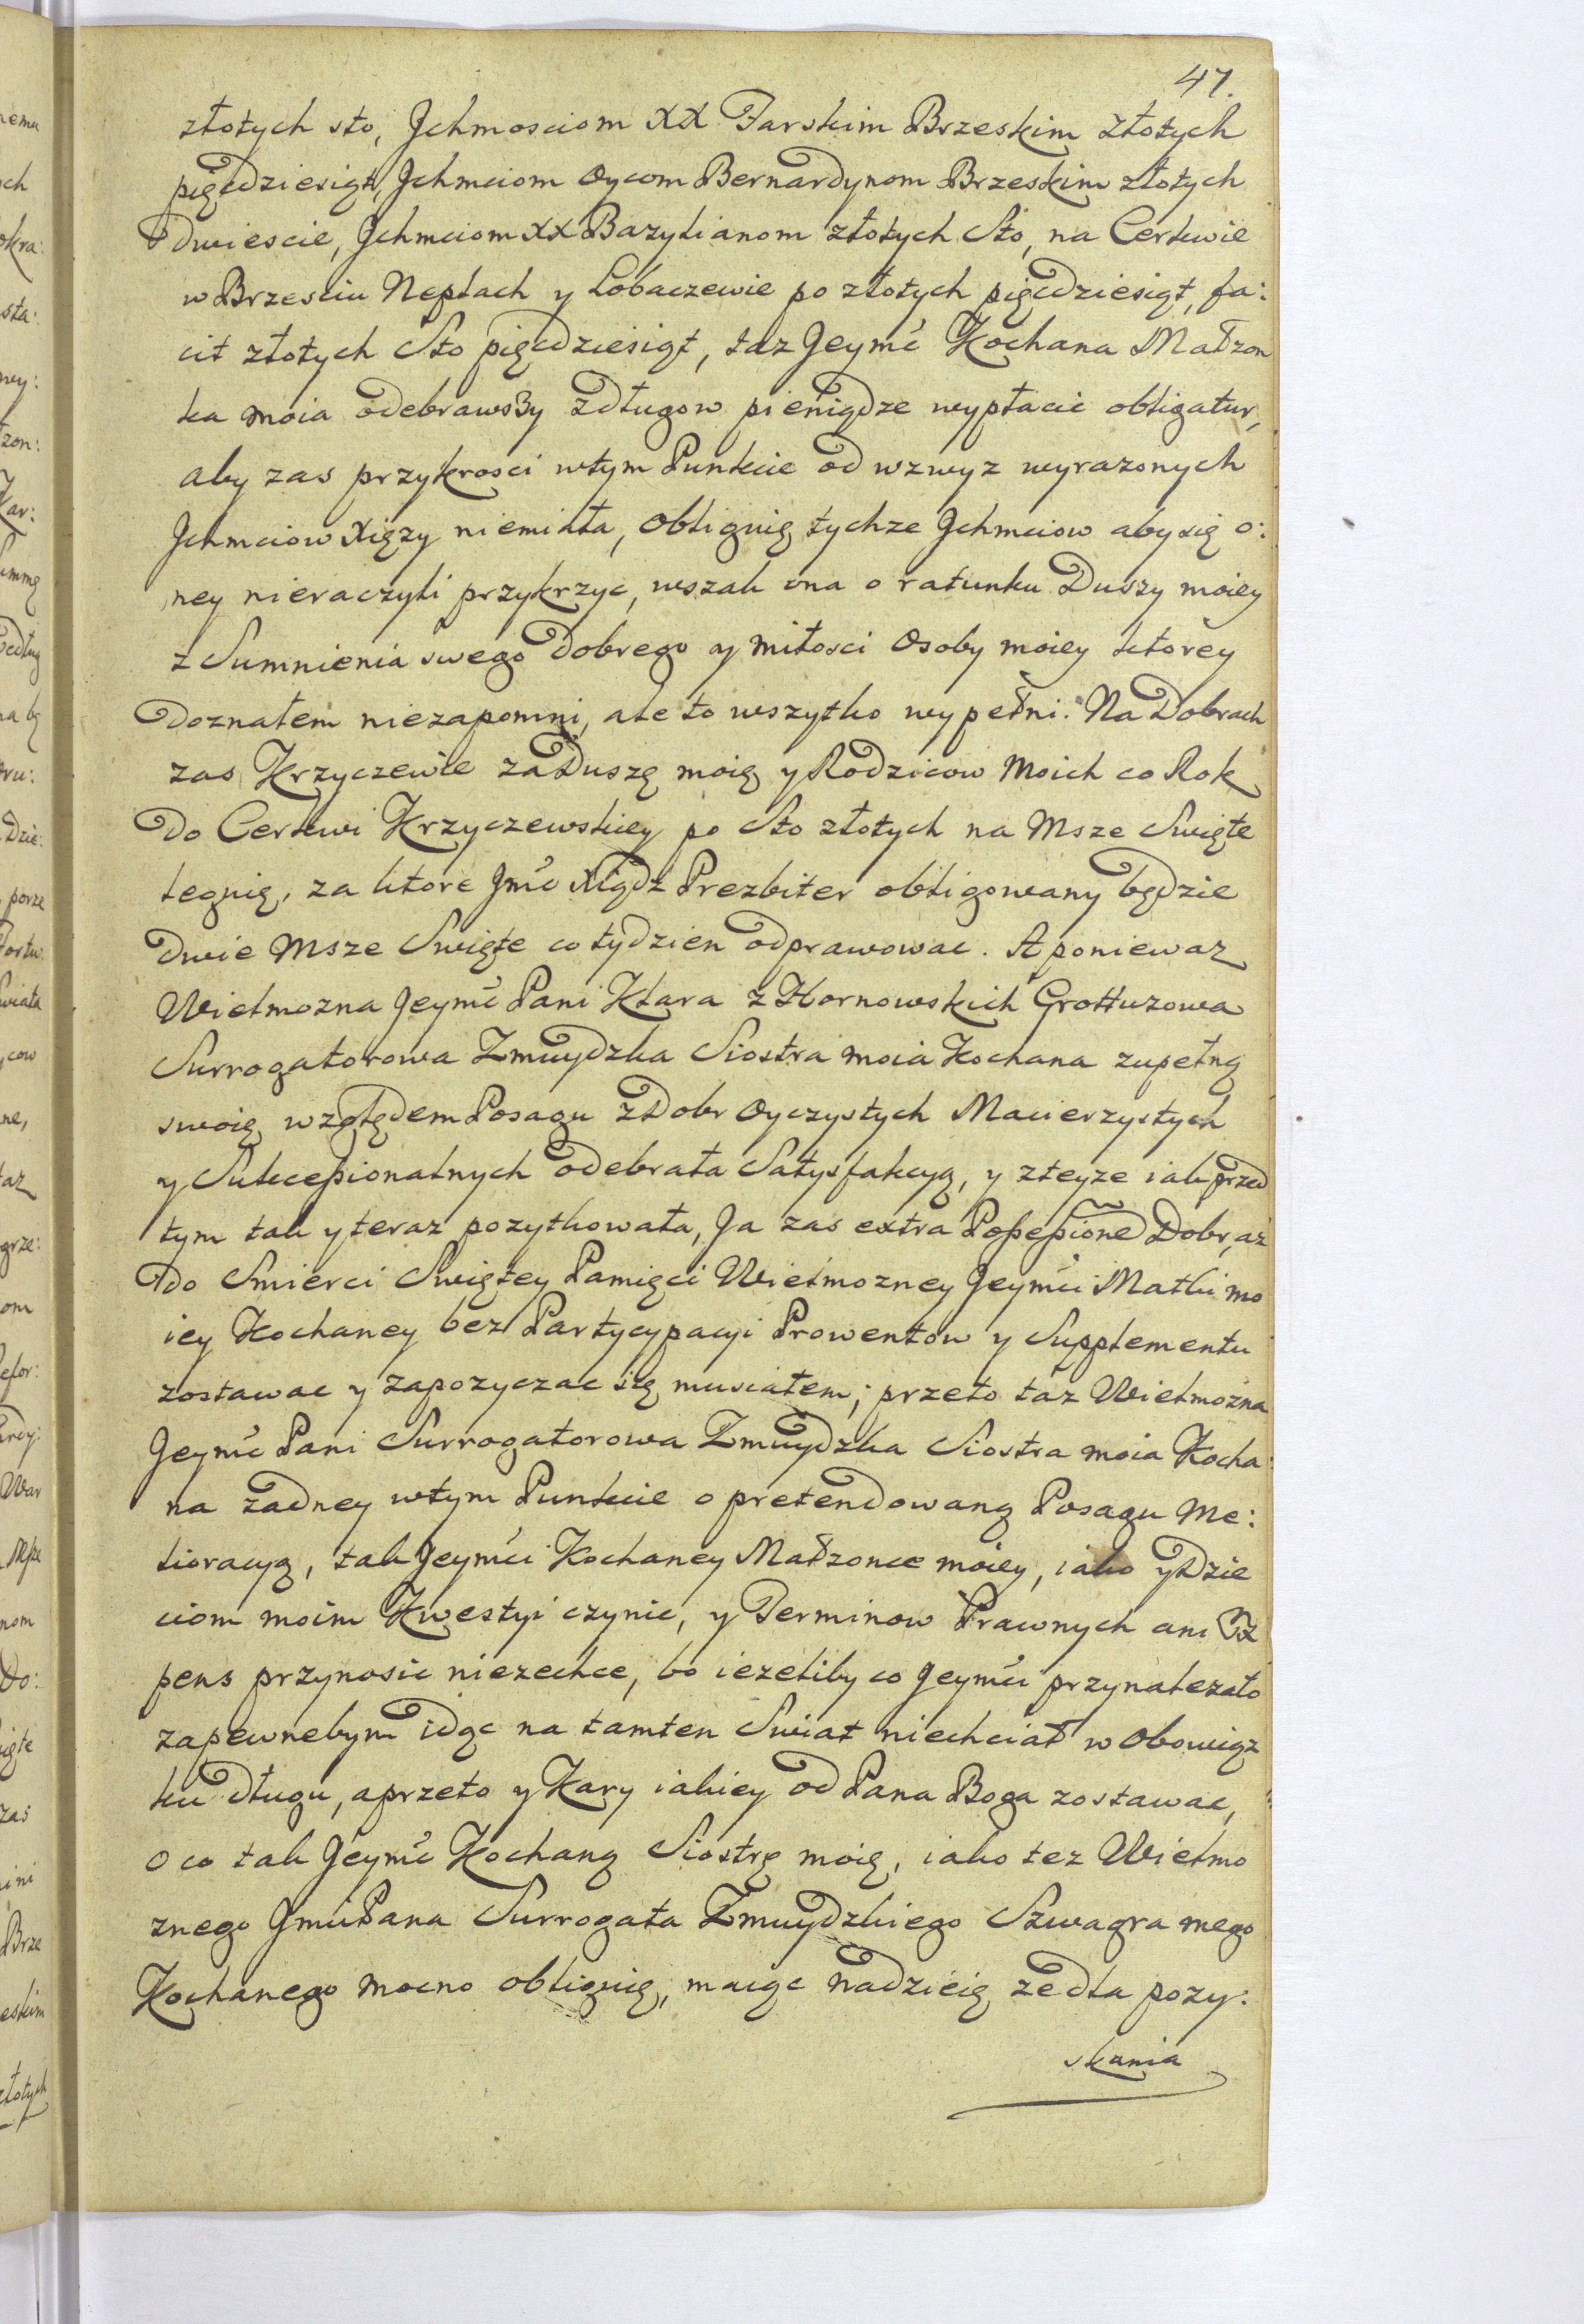 47.
złotych sto, Jchmosciom XX Farskim Brzeskim złotych
pięcdziesiąt, Jchmciom Oycom Bernardynom Brzeskim złotych
dwiescie, Jchmciom XX Bazylianom złotych Sto, na Cerkwie
w Brzesciu Neplach y Lobaczewie po złotych pięcdziesiąt, fa:
cit złotych Sto pięcdziesiąt, taz Jeymć Kochana Małzon
ka moia odebrawszy zdługow pieniądze wypłacic obligatur,
aby zas przykrosci wtym Punkcie od wzwyz wyrazonych
Jchmciow Xięzy niemiała, obliguię tychze Jchmciow aby się o:
ney nieraczyli przykrzyc, wszak ona o ratunku Duszy moiey
z Sumnienia swego dobrego y miłosci Osoby moiey ktorey
doznałem niezapomni, ale to wszytko wypełni. Na Dobrach
zas Krzyczewie za Duszę moię y Rodzicow Moich co Rok
do Cerkwi Krzyczewskiey po Sto złotych na Msze Swięte
leguię, za ktore Jmć Xiądz Prezbiter obligowany będzie
dwie Msze Swięte co tydzien odprawowac. A poniewaz
Wielmozna Jeymć Pani Klara z Hornowskich Grotłuzowa
Surrogatorowa Zmuydzka Siostra moia Kochana zupełną
swoię względem Posagu z Dobr Oyczystych Macierzystych
y Sukcessionalnych odebrała Satysfakcyą, y zteyze iak przed
tym tak y teraz pozytkowała, Ja zas extra Possessione Dobr, az
do Smierci Swiętey Pamięci Wielmozney Jeymći Matki mo
iey Kochaney bez Partycypacyi Prowentow y Supplementu
zostawac y zapozyczac się musiałem; przeto taz Wielmozna
Jeymć Pani Surrogatorowa Zmuydzka Siostra moia Kocha:
na zadney wtym Punkcie o pretendowaną Posagu Me:
lioracyą, tak Jeymći Kochaney Małzonce moiey, iako y Dzie
ciom moim Kwestyi czynic, y Terminow Prawnych ani Ex
pens przynosic niezechce, bo iezeliby co Jeymći przynalezało
zapewnebym idąc na tamten Swiat niechciał w Obowiąz
ku długu, aprzeto y Kary iakiey od Pana Boga zostawac,
O co tak Jeymć Kochaną Siostrę moię, iako tez Wielmo
znego Jmći Pana Surrogata Zmuydzkiego Szwagra mego
Kochanego mocno obliguię, maiąc nadzieię ze dla pozy:
skania